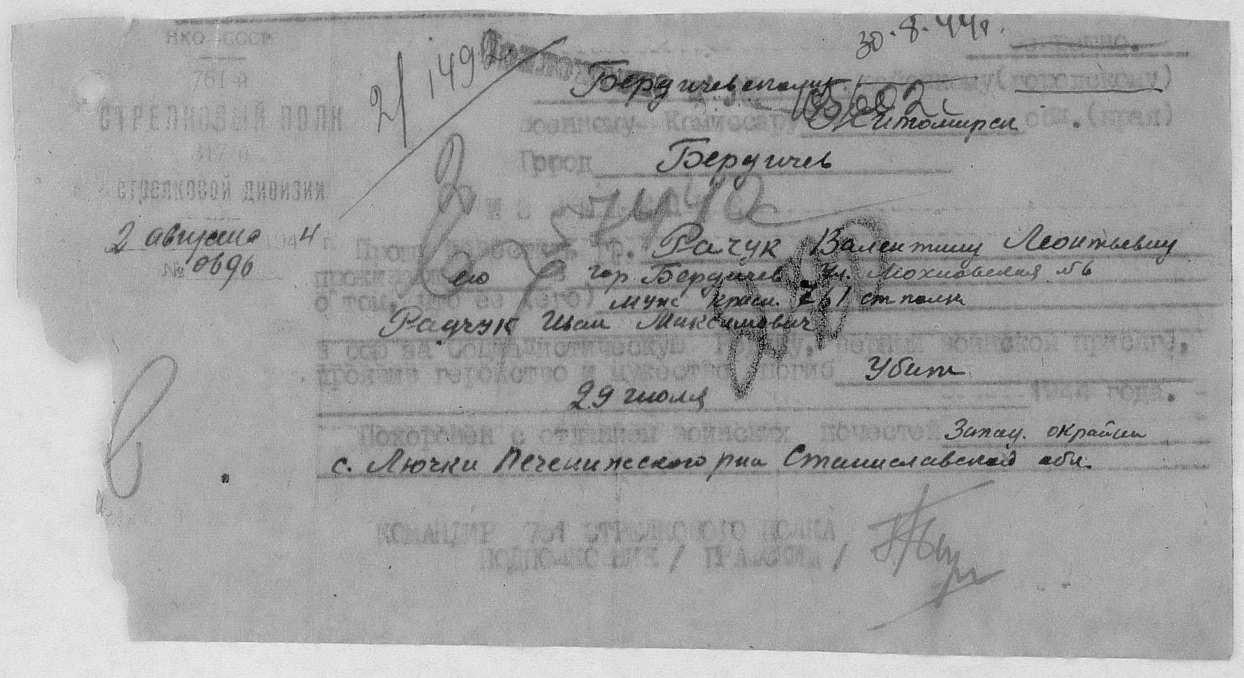 НКО СССР
761-й
СТРЕЛКОВЫЙ ПОЛК
317-й
стрелковой дивизии
2 августа 1944 г.
№ 0696
30.8.44г.
2/1492
Бердичевскому районному (городскому)
военному Комиссару Житомирск обл. (края)
Город Бердичев
57442с
Прошу известить гр. Рачук Валентину Леонтьевну
прожив ую гор Бердичев ул. Махновская № 6
о том, что ее (его) муж красн. 761 ст полка
Радчук Иван Максимович
в бою за Социалистическую Родину, верный воинской присяге,
проявив геройство и мужество погиб Убит
29 июля 1944 года.
Похоронен с отданием воинских почестей Запад. окраина
с. Лючки Печенижского р-на Станиславской обл.
КОМАНДИР 761 СТРЕЛКОВОГО ПОЛКА
ПОДПОЛКОВНИК